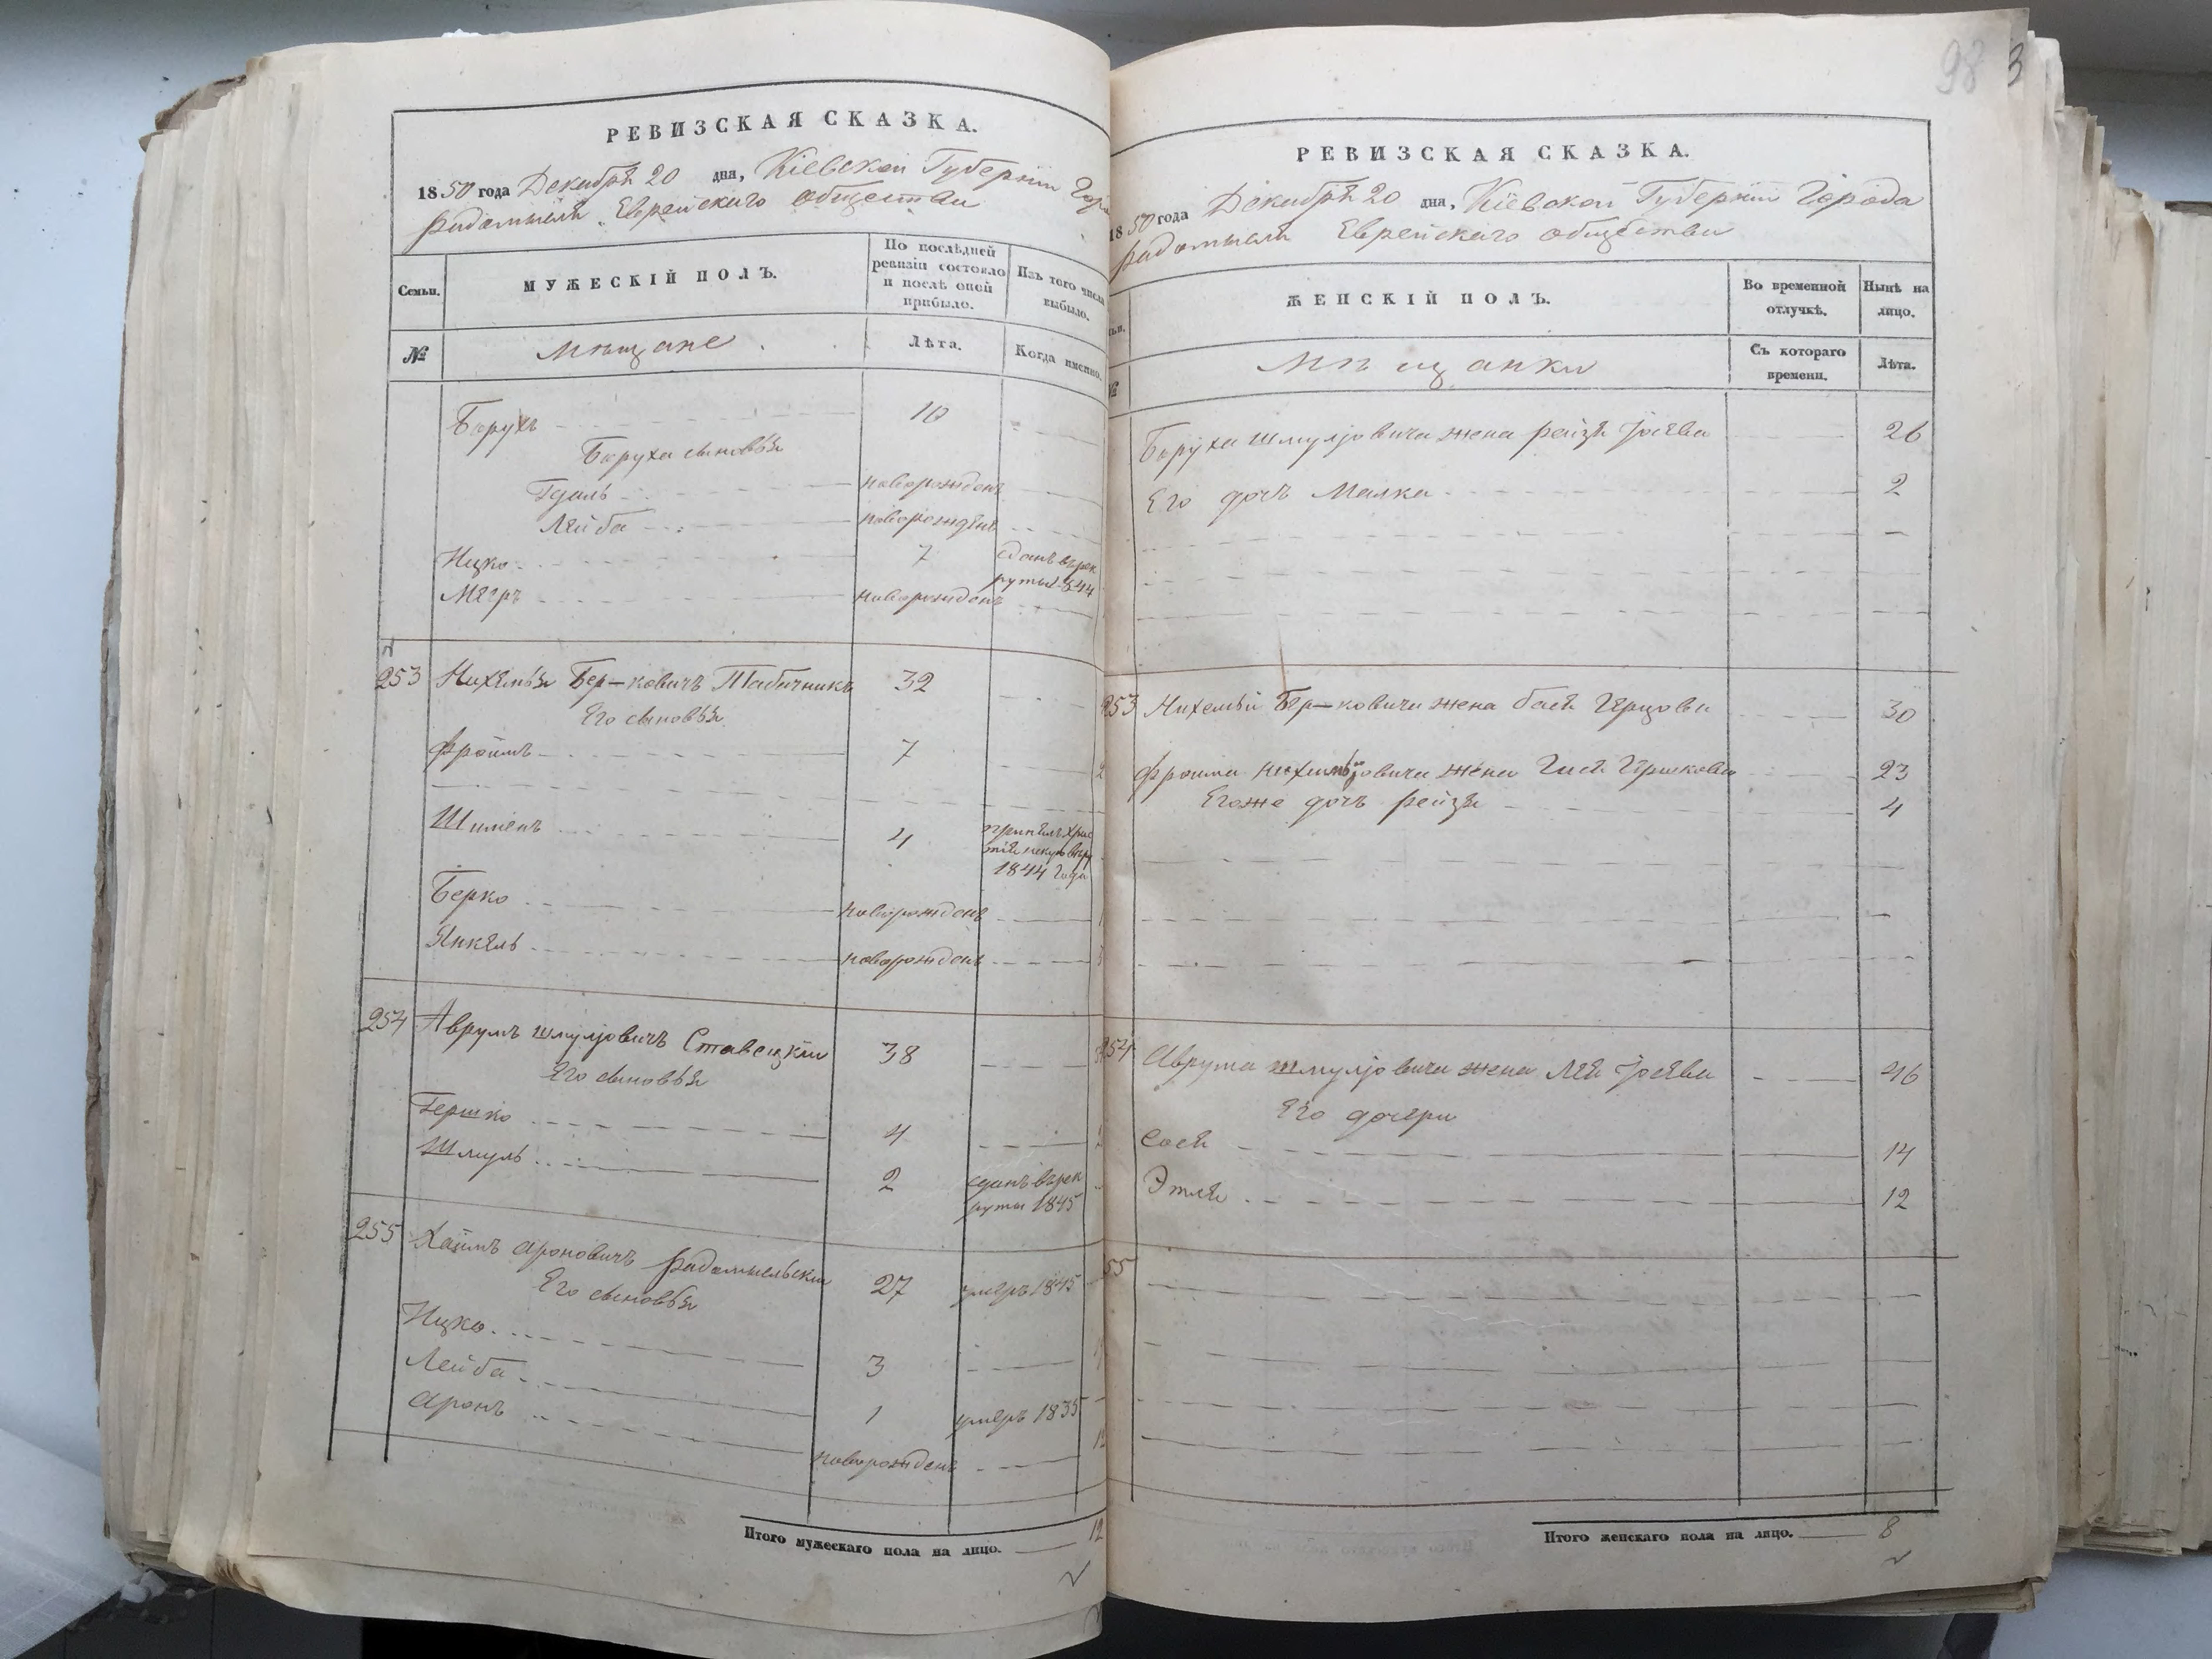 РЕВИЗСКАЯ СКАЗКА.
1850 года Декабря 20 дня, Кіевской Губерніи
Радомысля Еврейскаго общества
Семьи.
МУЖЕСКІЙ ПОЛЪ.
По послѣдней ревизіи состояло и послѣ оной прибыло.
Изъ того числа выбыло.
№
мѣщане
Лѣта.
Когда именно.
Борухъ 10
Боруха сыновья
Гдаль новорожденъ
Лейба новорожденъ
Ицко 7 сданъ въ рекруты 1844
Мееръ новорожденъ
253 Нихемья Бер-ковичъ Табачникъ 32
Его сыновья
Фроимъ 7
Шимень 4 принялъ христіянскую вѣру 1844 года
Берко новорожденъ
Янкель новорожденъ
254 Аврумъ Шмуліовичъ Ставецкій 38
Его сыновья
Гершко 4
Шмуль 2 сданъ въ рекруты 1845
255 Хаимъ Ароновичъ Радомысльскій 27 умеръ 1845
Его сыновья
Ицко 3
Лейба 1 умеръ 1835
Аронъ новорожденъ
Итого мужескаго пола на лицо. 12
98
3
РЕВИЗСКАЯ СКАЗКА.
1850 года Декабря 20 дня, Кіевской Губерніи Города
Радомысля Еврейскаго общества
ЖЕНСКІЙ ПОЛЪ.
Во временной отлучкѣ.
Нынѣ на лицо.
№
мѣщанки
Съ котораго времени.
Лѣта.
Боруха Шмуліовича жена Рейзя Іосева 26
Его дочь Малка 2
253 Нихемьи Бер-ковича жена Бася Герцова 30
Фроима Нихемьіовича жена Гися Гершкова 23
Егоже дочь Рейзя 4
254 Аврума Шмуліовича жена Лея Іосева 46
Его дочери
Сося 14
Этля 12
55
Итого женскаго пола на лицо. 8